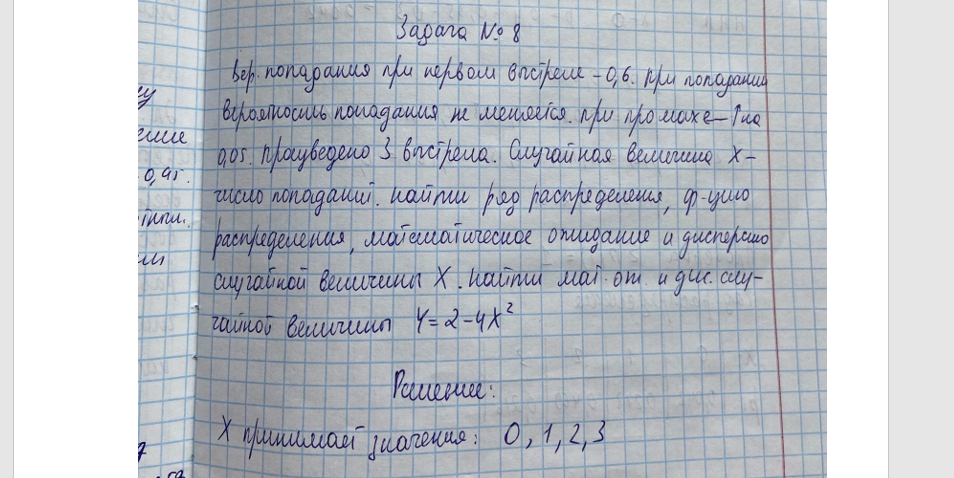 Задача № 8
Вер. попадания при первом выстреле - 0,6. При попадании
вероятность попадания не меняется. при промахе - ↑ на
0,05. Произведено 3 выстрела. Случайная величина X -
число попаданий. найти ряд распределения, ф-цию
распределения, математическое ожидание и дисперсию
случайной величины X. Найти мат. ож. и дис. слу-
чайной величины Y = 2 - 4X²
Решение:
X принимает значения: 0, 1, 2, 3